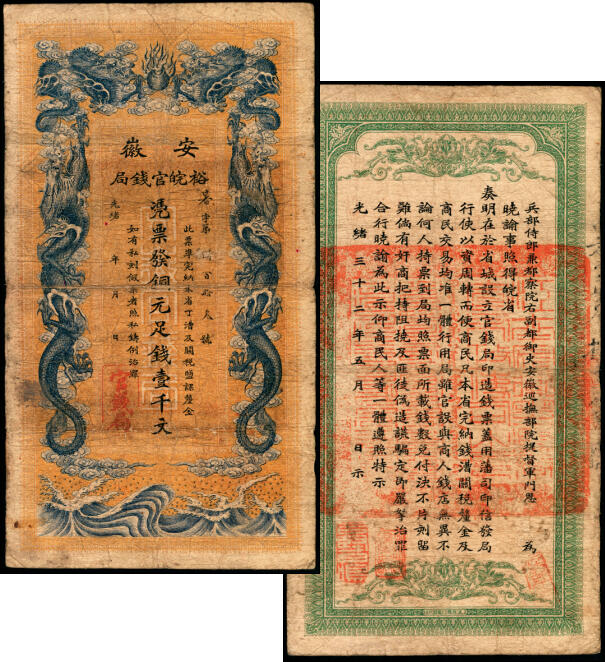 安徽
裕皖官錢局
憑票發銅元足錢壹千文
字第 百拾 號
此票準完納本省丁漕及關稅鹽課釐金
如有私刻假 者照私鑄例治罪
光緒 年 月 日
兵部侍郎兼都察院右副都御史安徽巡撫部院提督軍門恩 為
曉諭事照得皖省
奏明在於省城設立官錢局印造錢票蓋用藩司印信發局
行使以資周轉而便商民凡本省完納錢漕關稅釐金及
商民交易均准一體行用局雖官設與商人錢店無異不
論何人持票到局均照票面所載錢數兌付決不片刻留
難倘有奸商把持阻撓及匪徒偽造誆騙定即嚴拏治罪
合行曉諭為此示仰商民人等一體遵照特示
光緒三十二年五月 日示